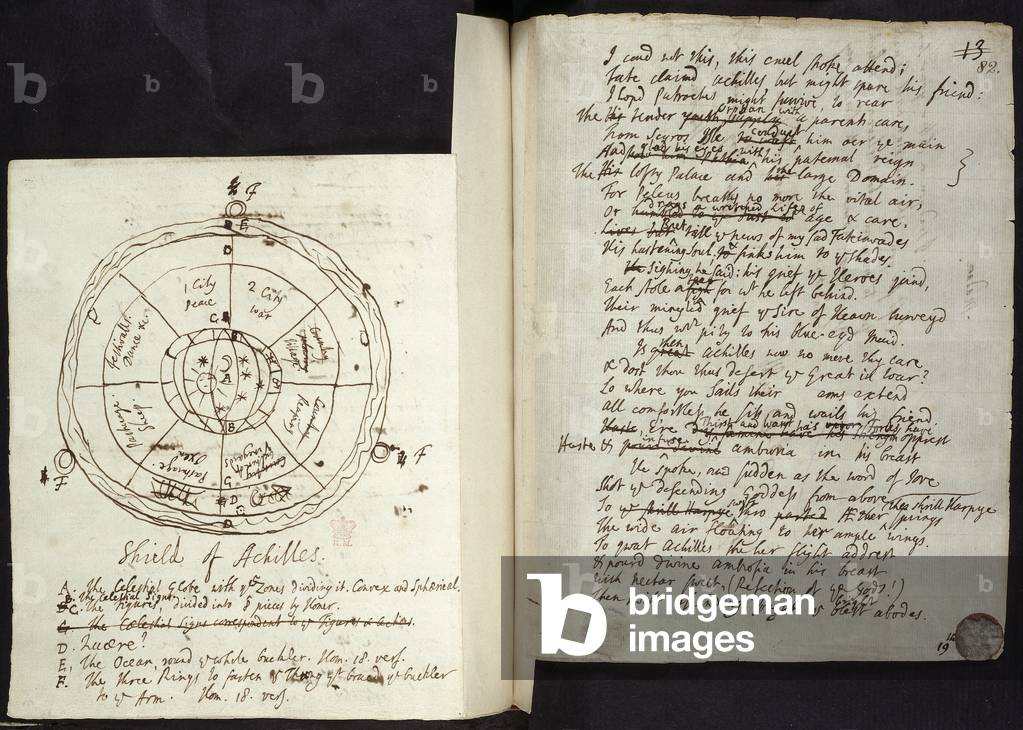 F
B E
D
1 City
peace
2 City
war
G
Country
Village
Country
Reaping
Country
Vineyards
Pasturage
Oxen
Pasturage
Sheep
Festivall.
Dance &c.
A
B
G
D
D
F
F
Shield of Achilles.
A. The Celestial Globe with ye Zones dividing it. Convex and Sphærical.
B. The Celestial Signs
C. The Figures, divided into 8 pieces by Homer.
G. The Cœlestial Signs correspondent to ye Figures
D. Quære?
E. The Ocean, round ye whole buckler. Hom. 18. vers.
F. The three Rings to fasten ye Thong yt braced ye buckler
to ye Arm. Hom. 18. vers.
13
82.
I coud not this, this cruel stroke attend;
Fate claimd Achilles but might spare his friend:
I hop'd Patroclus might survive, to rear
The his tender Orphan with a parents care,
From Scyros Isle conduct him oer ye main
And glad his eyes with his paternal reign
The His lofty Palace and the large Domain.
For Peleus breaths no more the vital air;
Or drags a wretched Life of age & care,
But till ye news of my sad Fate invades
His hastening Soul, & sinks him to ye Shades.
Sighing he said: his grief ye Heroes joind,
Each stole a tear for wt he left behind.
Their mingled grief ye Sire of Heaven surveyd
And thus with pity to his blue-eyd Maid.
Is then Achilles now no more thy care
& dost thou thus desert ye Great in War?
Lo where yon Sails their arms extend
All comfortless he sits, and wails his friend
Ere Thirst and Want his forces have opprest
Haste & infuse ambrosia in his breast
He spoke, and sudden as the word of Jove
Shot ye descending Goddess from above
To swift thro Æther the shrill Harpye springs
The wide air floating to her ample wings.
To great Achilles she her flight addrest
& pourd divine ambrosia in his breast
With nectar sweet, (Refection of ye Gods!)
Then blest abodes.
19
b
bridgeman
images